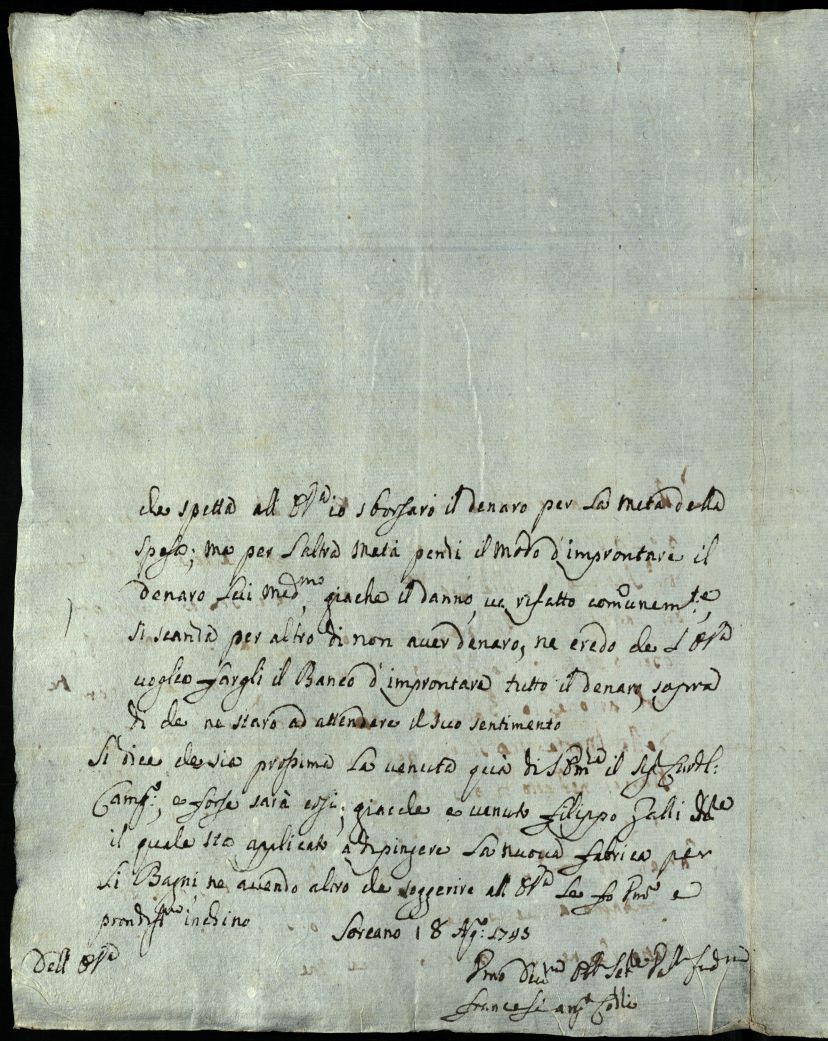 che spetta all' Ill.a io sborsarò il denaro per la metà della
spesa; ma per l'altra metà pendi il modo d'improntare il
denaro lui med.mo, giache il danno, va rifatto comunem.te,
si scansa per altro di non aver denaro, ne credo che l'
voglia fargli il Banco d'improntare tutto il denaro, sopra
di che ne starò ad attendere il suo sentimento
Si dice che sia prossima la venuta quà di S. Em.za il Sig.r Card.l:
Camp.o, e forse sarà così, giacche è venuto Filippo Zalli
il quale sta applicato à dipingere la nuova fabrica per
li Bagni, ne avendo altro che soggerire all' le fo e
inchino
Soreano 18 Ag.o 1743
Dell'
Francesc'